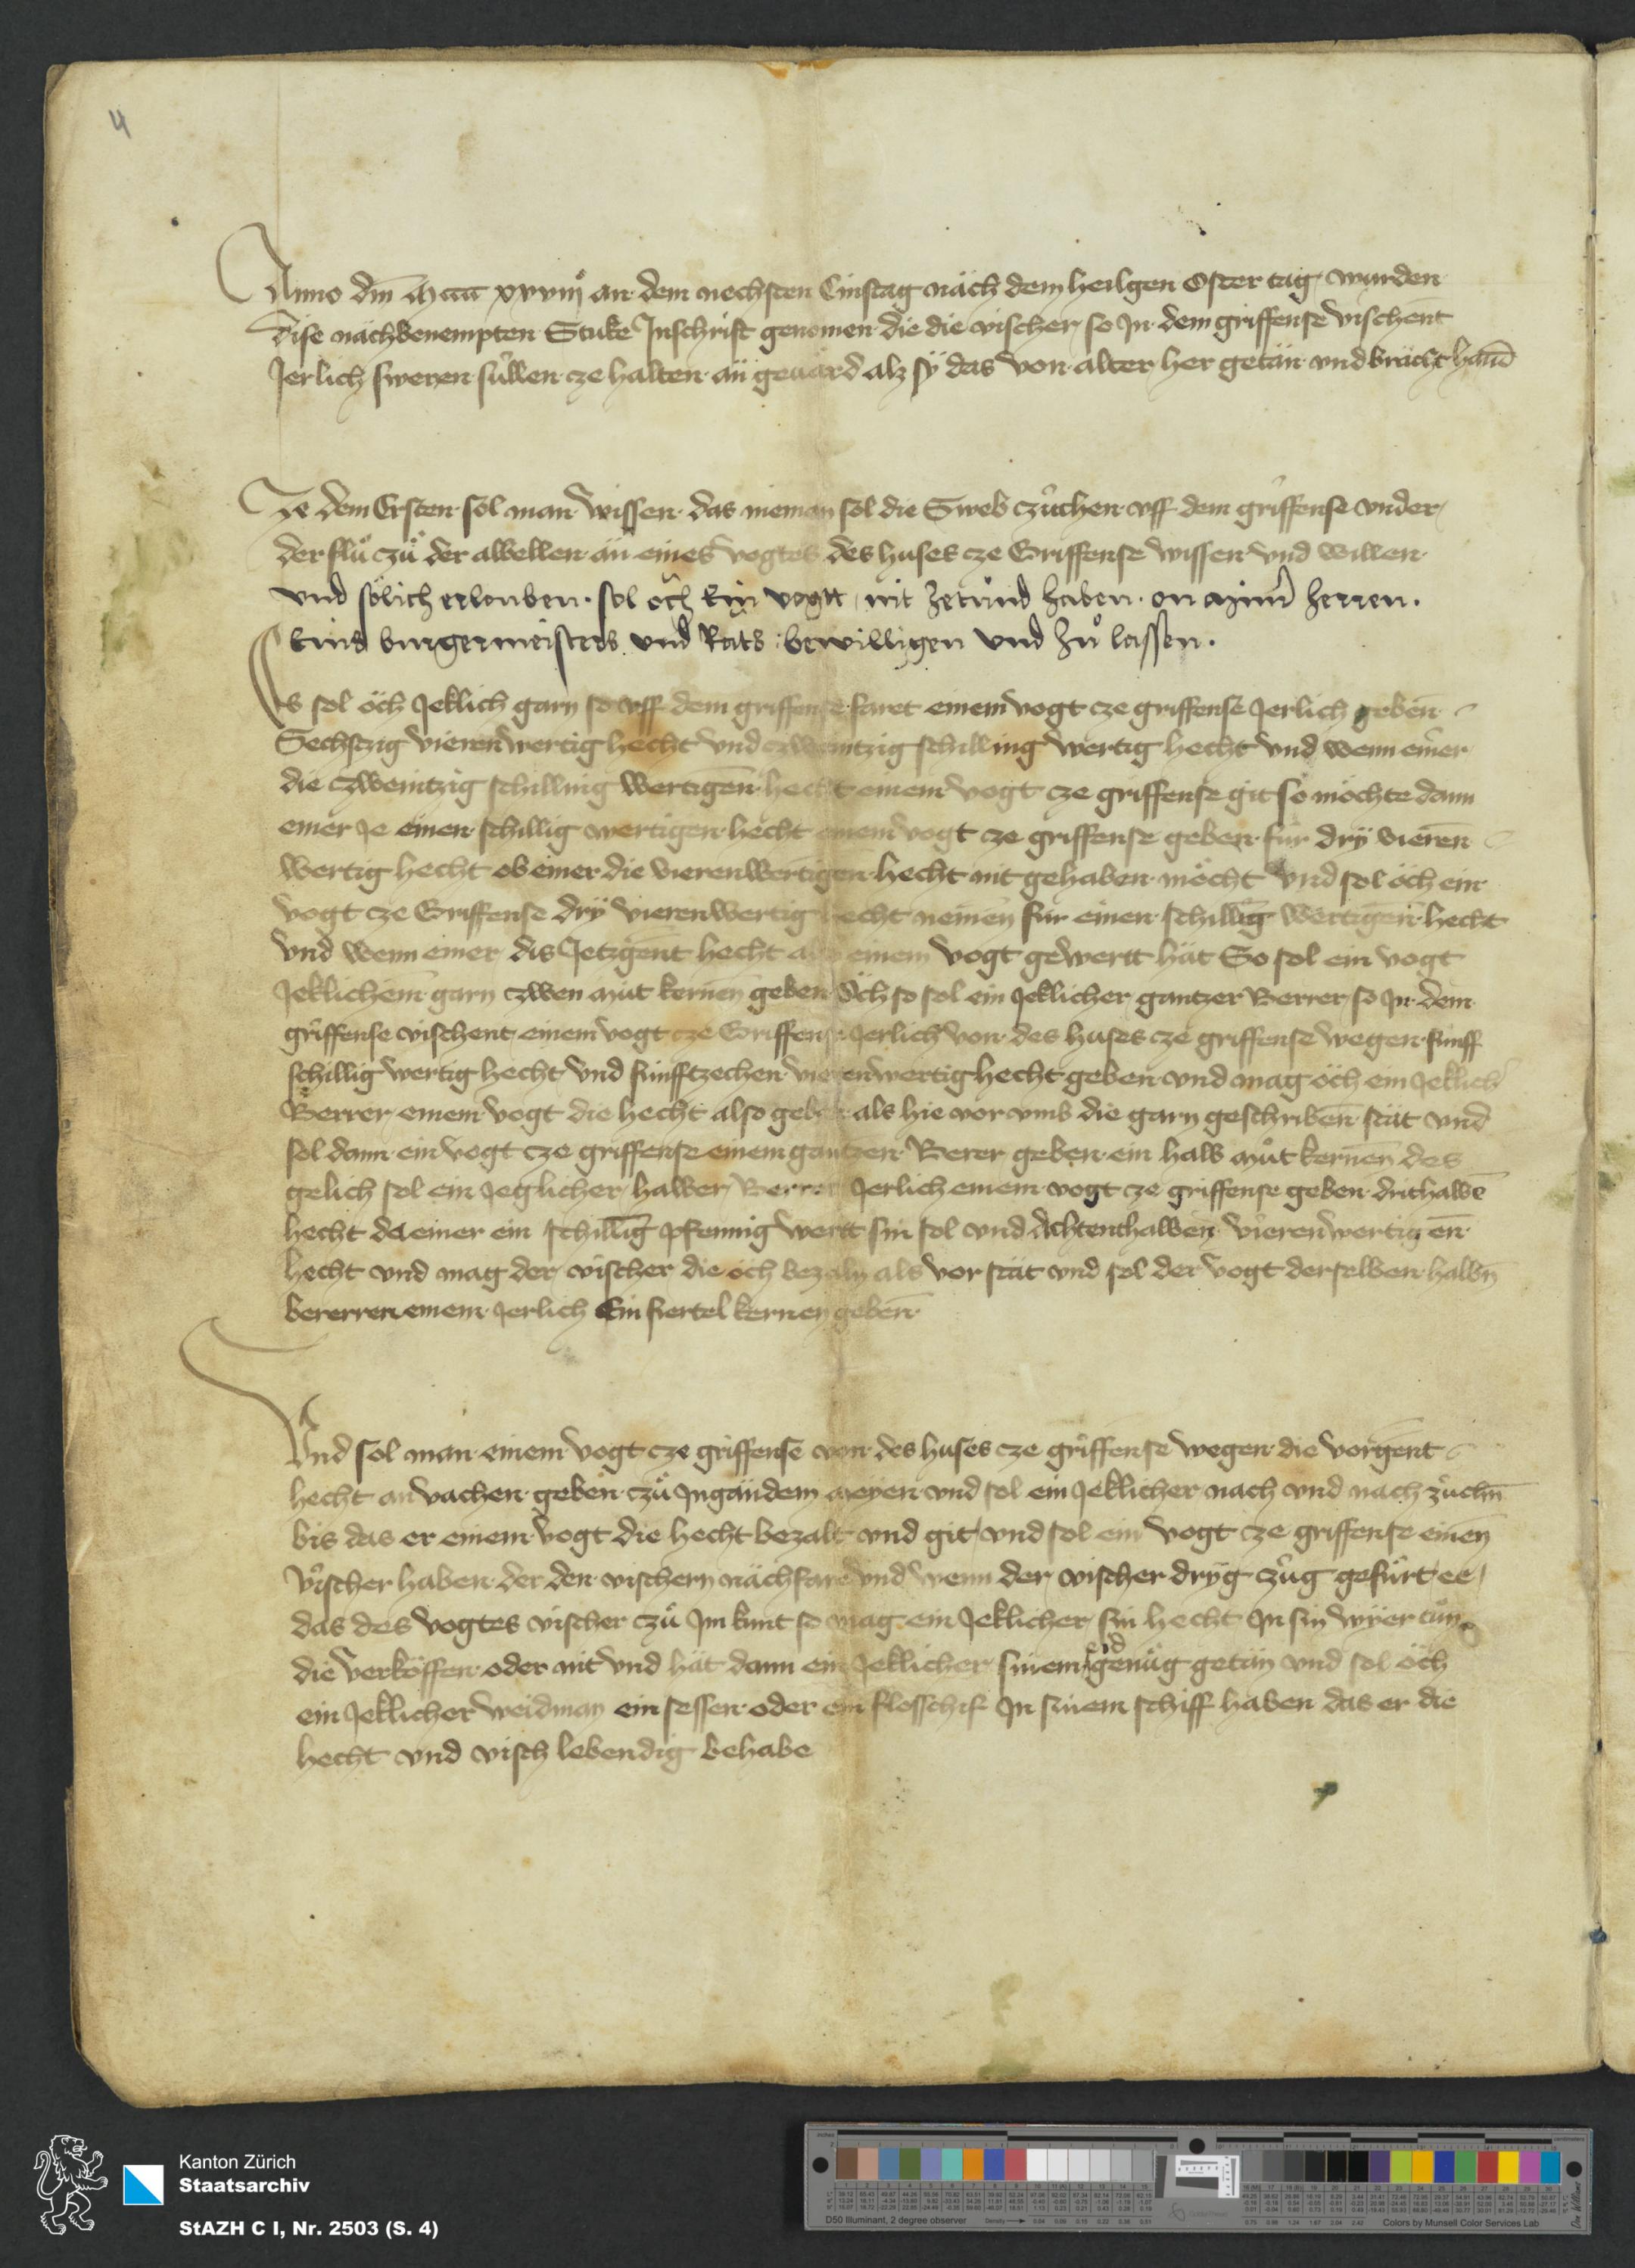 4
Anno dm̄ Mcccc xxviijͦ an dem nechsten Cinstag näch dem heilgen Oster tag wurden
dise nächbenempten Stuke Jnschrift genomen die die vischer so Jn dem griffense vischent
Jerlich sweren sullen cze halten än geuärd alz sÿ das von alter her getän vnd brächt hand
Ze dem Ersten sol man wissen das nieman sol die Sweb czuchen vff dem griffense vnder
der fluͦ czuͦ der albellen än eines vogtes des huses cze Griffense wissen vnd willen
vnd sölich erlouben sol öch Ein vogtt nit zetund haben on miner herren
Eins burgermeisters vnd Rats bewilligen vnd zuͦ lassen.
Es sol öch Jeklich garn so vff dem griffense faret einem vogt cze griffense Jerlich geben
Sechszig vieren wertig hecht vnd czweintzig schilling wertig hecht vnd wenn einer
die czweintzig schilling wertigen hecht einem vogt cze griffense git so möchte dann
einer Je einen schillig wertigen hecht einem vogt ze griffense geben für drÿ vieren
wertig hecht ob einer die vierenwertigen hecht nit gehaben möcht vnd sol öch ein
vogt cze Griffense drÿ vierenwertig hecht nemen für einen schillig wertigen hecht
vnd wenn einer dis Jetzigent hecht also einem vogt gewertt hät So sol ein vogt
Jeklichem garn czwen müt kernen geben Öch so sol ein Jeklicher gantzer Berrer so Jn dem
griffense vischent einem vogt cze Griffense Jerlich von des huses cze griffense wegen fünff
schillig wertig hecht vnd fünfftzechen vierenwertig hecht geben vnd mag öch ein Jeklicher
Berrer einem vogt die hecht also geben als hie vor vmb die garn geschriben stät vnd
sol dann ein vogt cze griffense einem gantzen Berer geben ein halb müt kernen des
gelich sol ein Jeglicher halber Berrer Jerlich einem vogt ze griffense geben drithalbē
hecht der einer ein schillig pfennig wertt sin sol vnd Achtenthalben vierenwertigen
hecht vnd mag der vischer die öch bezaln als vor stät vnd sol der vogt derselben halbn̄
bererren einem Jerlich Ein fiertel kernen geben
Vnd sol man einem vogt cze griffense von des huses cze griffense wegen die vorgent
hecht an vachen geben czuͦ Jngändem meÿen vnd sol ein Jeklicher nach vnd nach zuchn̄
bis das er einem vogt die hecht bezalt vnd git vnd sol ein vogt cze griffense einen
vischer haben der den vischern nächfare vnd wenn der vischer drÿg züg gefürt ee
das des vogtes vischer czuͦ Jm kunt so mag ein Jeklicher sin hecht Jn sin wÿer tuͦn
die verköffen oder nit vnd hät dann ein Jeklicher sinem eid genuͦg getän vnd sol öch
ein Jeklicher weidman ein sessen oder ein flosschif Jn sinem schiff haben das er die
hecht vnd visch lebendig behabe
Kanton Zürich
Staatsarchiv
StAZH C I, Nr. 2503 (S. 4)
D50 Illuminant, 2 degree observer
Density
Colors by Munsell Color Services Lab